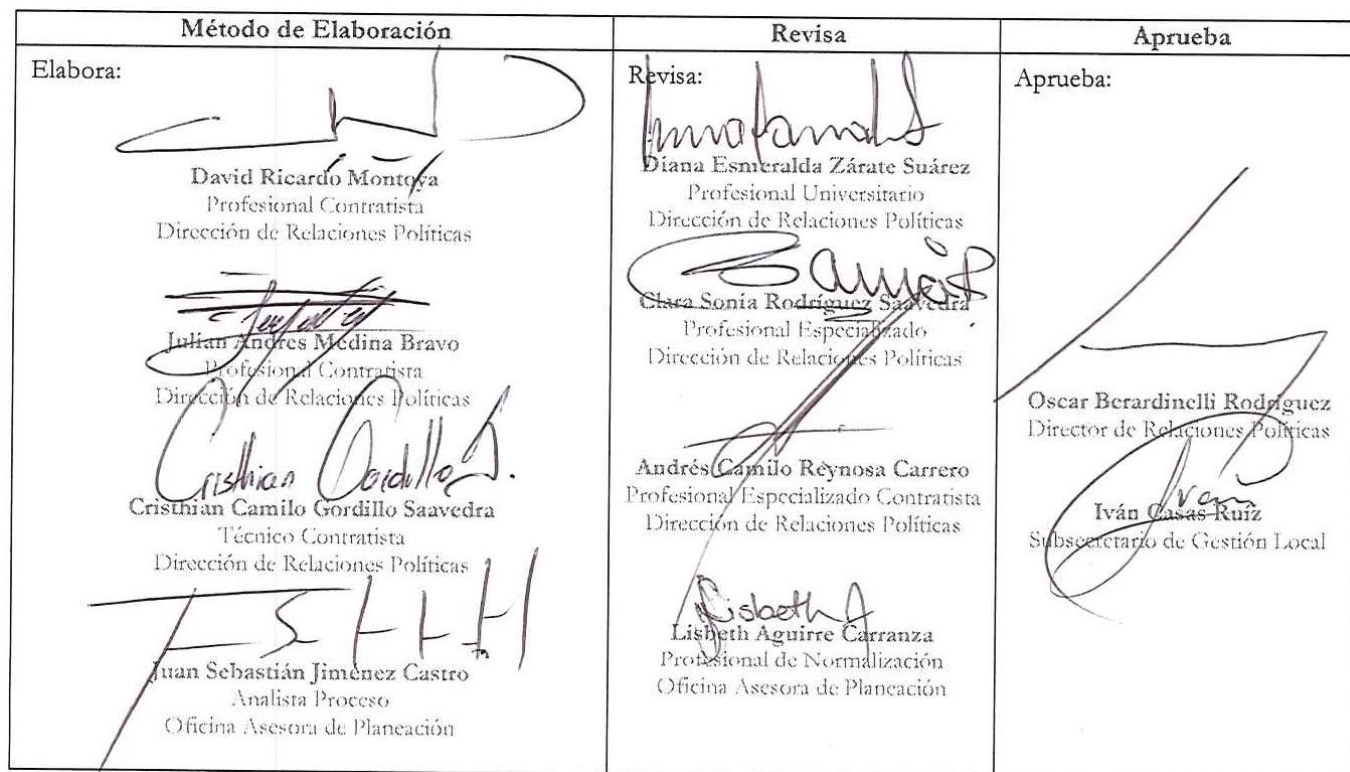 Método de Elaboración
Revisa
Aprueba
Elabora:
David Ricardo Montoya
Profesional Contratista
Dirección de Relaciones Políticas
Julían Andres Medina Bravo
Profesional Contratista
Dirección de Relaciones Políticas
Cristhian Gordillo S.
Cristhian Camilo Gordillo Saavedra
Técnico Contratista
Dirección de Relaciones Políticas
Juan Sebastián Jiménez Castro
Analista Proceso
Oficina Asesora de Planeación
Revisa:
Diana Esmeralda Zárate Suárez
Profesional Universitario
Dirección de Relaciones Políticas
Clara Sonia Rodríguez Saavedra
Profesional Especializado
Dirección de Relaciones Políticas
Andrés Camilo Reynosa Carrero
Profesional Especializado Contratista
Dirección de Relaciones Políticas
Lisbeth A
Lisbeth Aguirre Carranza
Profesional de Normalización
Oficina Asesora de Planeación
Aprueba:
Oscar Berardinelli Rodríguez
Director de Relaciones Políticas
Iván
Iván Casas Ruíz
Subsecretario de Gestión Local